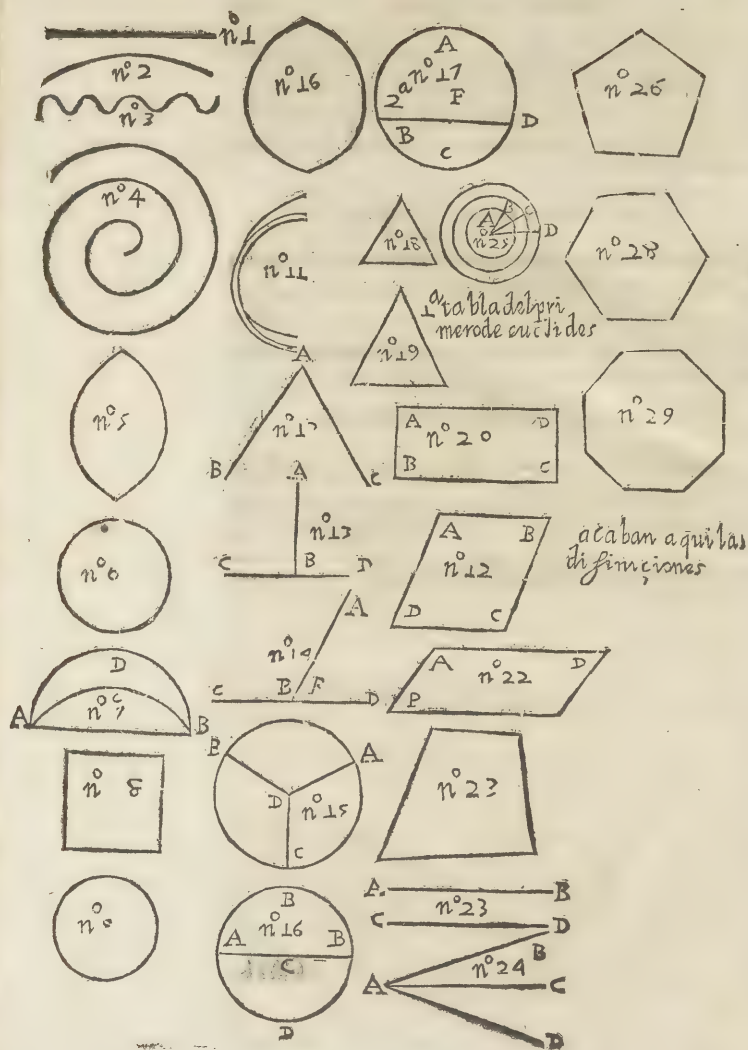 nº 1
nº 2
nº 3
nº 4
nº 5
nº 6
D
C
nº 7
A B
nº 8
nº
nº 16
nº 11
A
nº 12
B C
A
nº 13
C B D
A
nº 14
C B F D
B A
D nº 15
C
B
nº 16
A B
C
D
A
2ª nº 17
F
B D
C
nº 18
A B C
nº 25 D
1ª tabla del pri
mero de euclides
nº 19
A D
nº 20
B C
A B
nº 12
D C
A D
nº 22
P
nº 23
A B
nº 23
C D
B
nº 24
A C
D
nº 26
nº 28
nº 29
acaban aqui las
difiniçiones